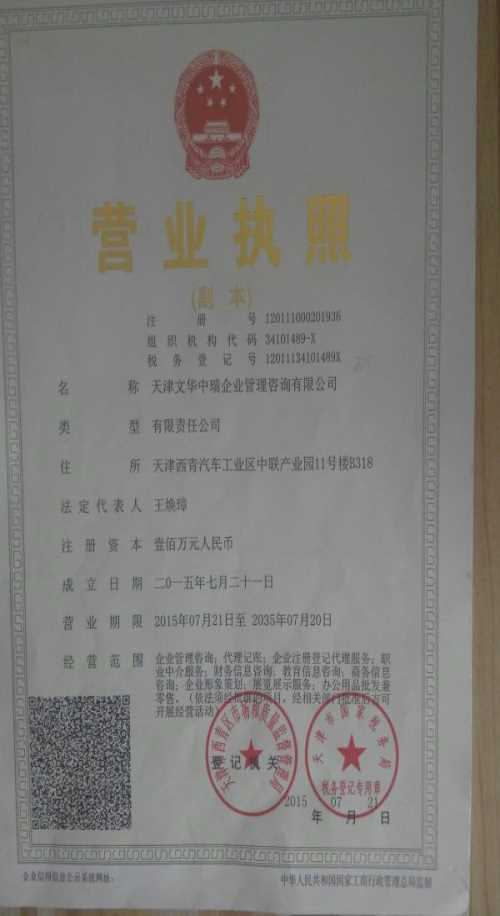 营业执照
(副本)
注册号 120111000201936
组织机构代码 34101489-X
税务登记号 12011134101489X
名称 天津文华中瑞企业管理咨询有限公司
类型 有限责任公司
住所 天津西青汽车工业区中联产业园11号楼B318
法定代表人 王焕璋
注册资本 壹佰万元人民币
成立日期 二〇一五年七月二十一日
营业期限 2015年07月21日至 2035年07月20日
经营范围 企业管理咨询；代理记账；企业注册登记代理服务；职
业中介服务；财务信息咨询；教育信息咨询；商务信息
咨询；企业形象策划；展览展示服务；办公用品批发兼
零售。（依法须经批准的项目，经相关部门批准后方可
开展经营活动
登记机关
天津市国家税务局
税务登记专用章
2015 07 21
年 月 日
企业信用信息公示系统网址：
中华人民共和国国家工商行政管理总局监制